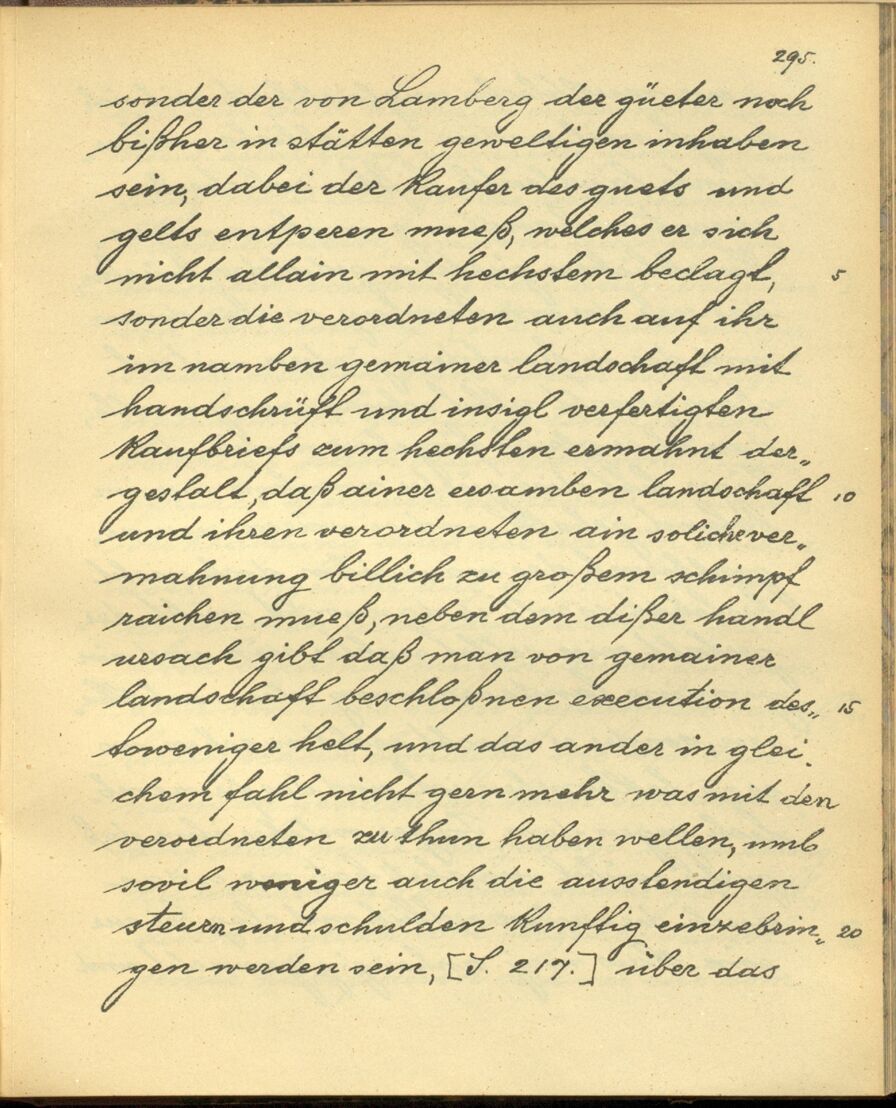 295.
sonder der von Lamberg der güeter noch
bißher in stätten geweltigen inhaben
sein, dabei der kaufer des guets und
gelts entperen mueß, welches er sich
nicht allain mit hechstem beclagt, 5
sonder die verordneten auch auf ihr
im namben gemainer landschaft mit
handschrüft und insigl verfertigten
kaufbriefs zum hechsten ermahnt der„
gestalt, daß ainer ersamben landschaft 10
und ihren verordneten ain soliche ver„
mahnung billich zu großem schimpf
raichen mueß, neben dem dißer handl
ursach gibt daß man von gemainer
landschaft beschloßnen execution des„ 15
toweniger helt, und das ander in glei.
chem fahl nicht gern mehr was mit den
verordneten zu thun haben wellen, umb
sovil weniger auch die ausstendigen
steurn und schulden kunftig einzebrin„ 20
gen werden sein, [S. 217.] über das